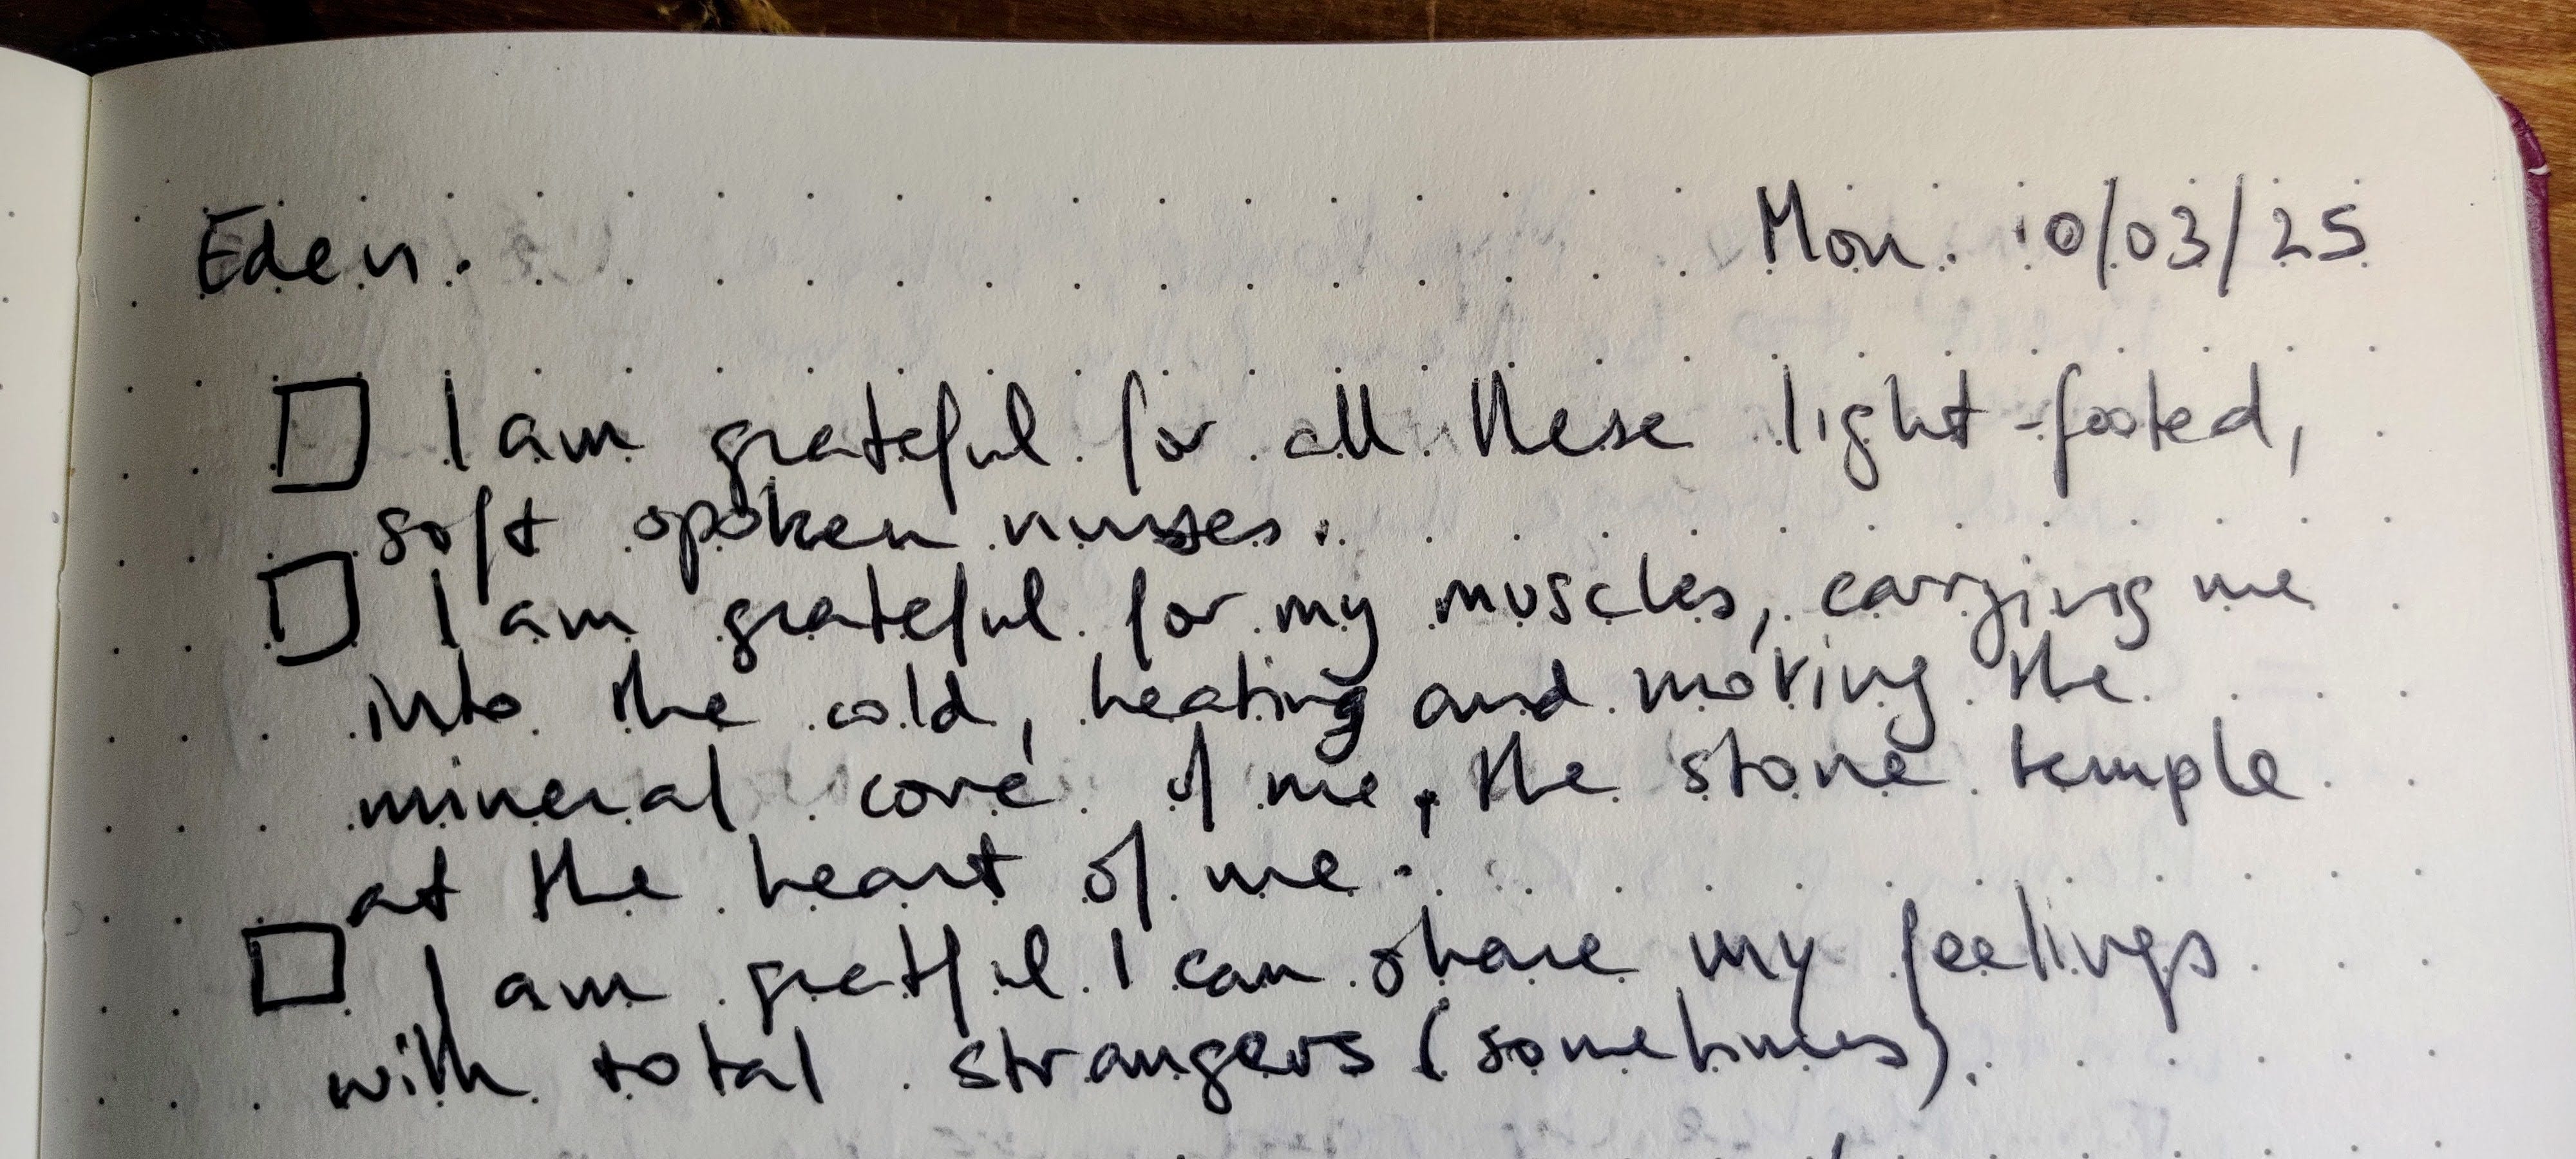 Eden. Mon. 10/03/25
I am grateful for all these light-footed,
soft spoken nurses.
I am grateful for my muscles, carrying me
into the cold, heating and moving the
mineral core of me, the stone temple
at the heart of me.
I am gratful I can share my feelings
with total strangers (sometimes).